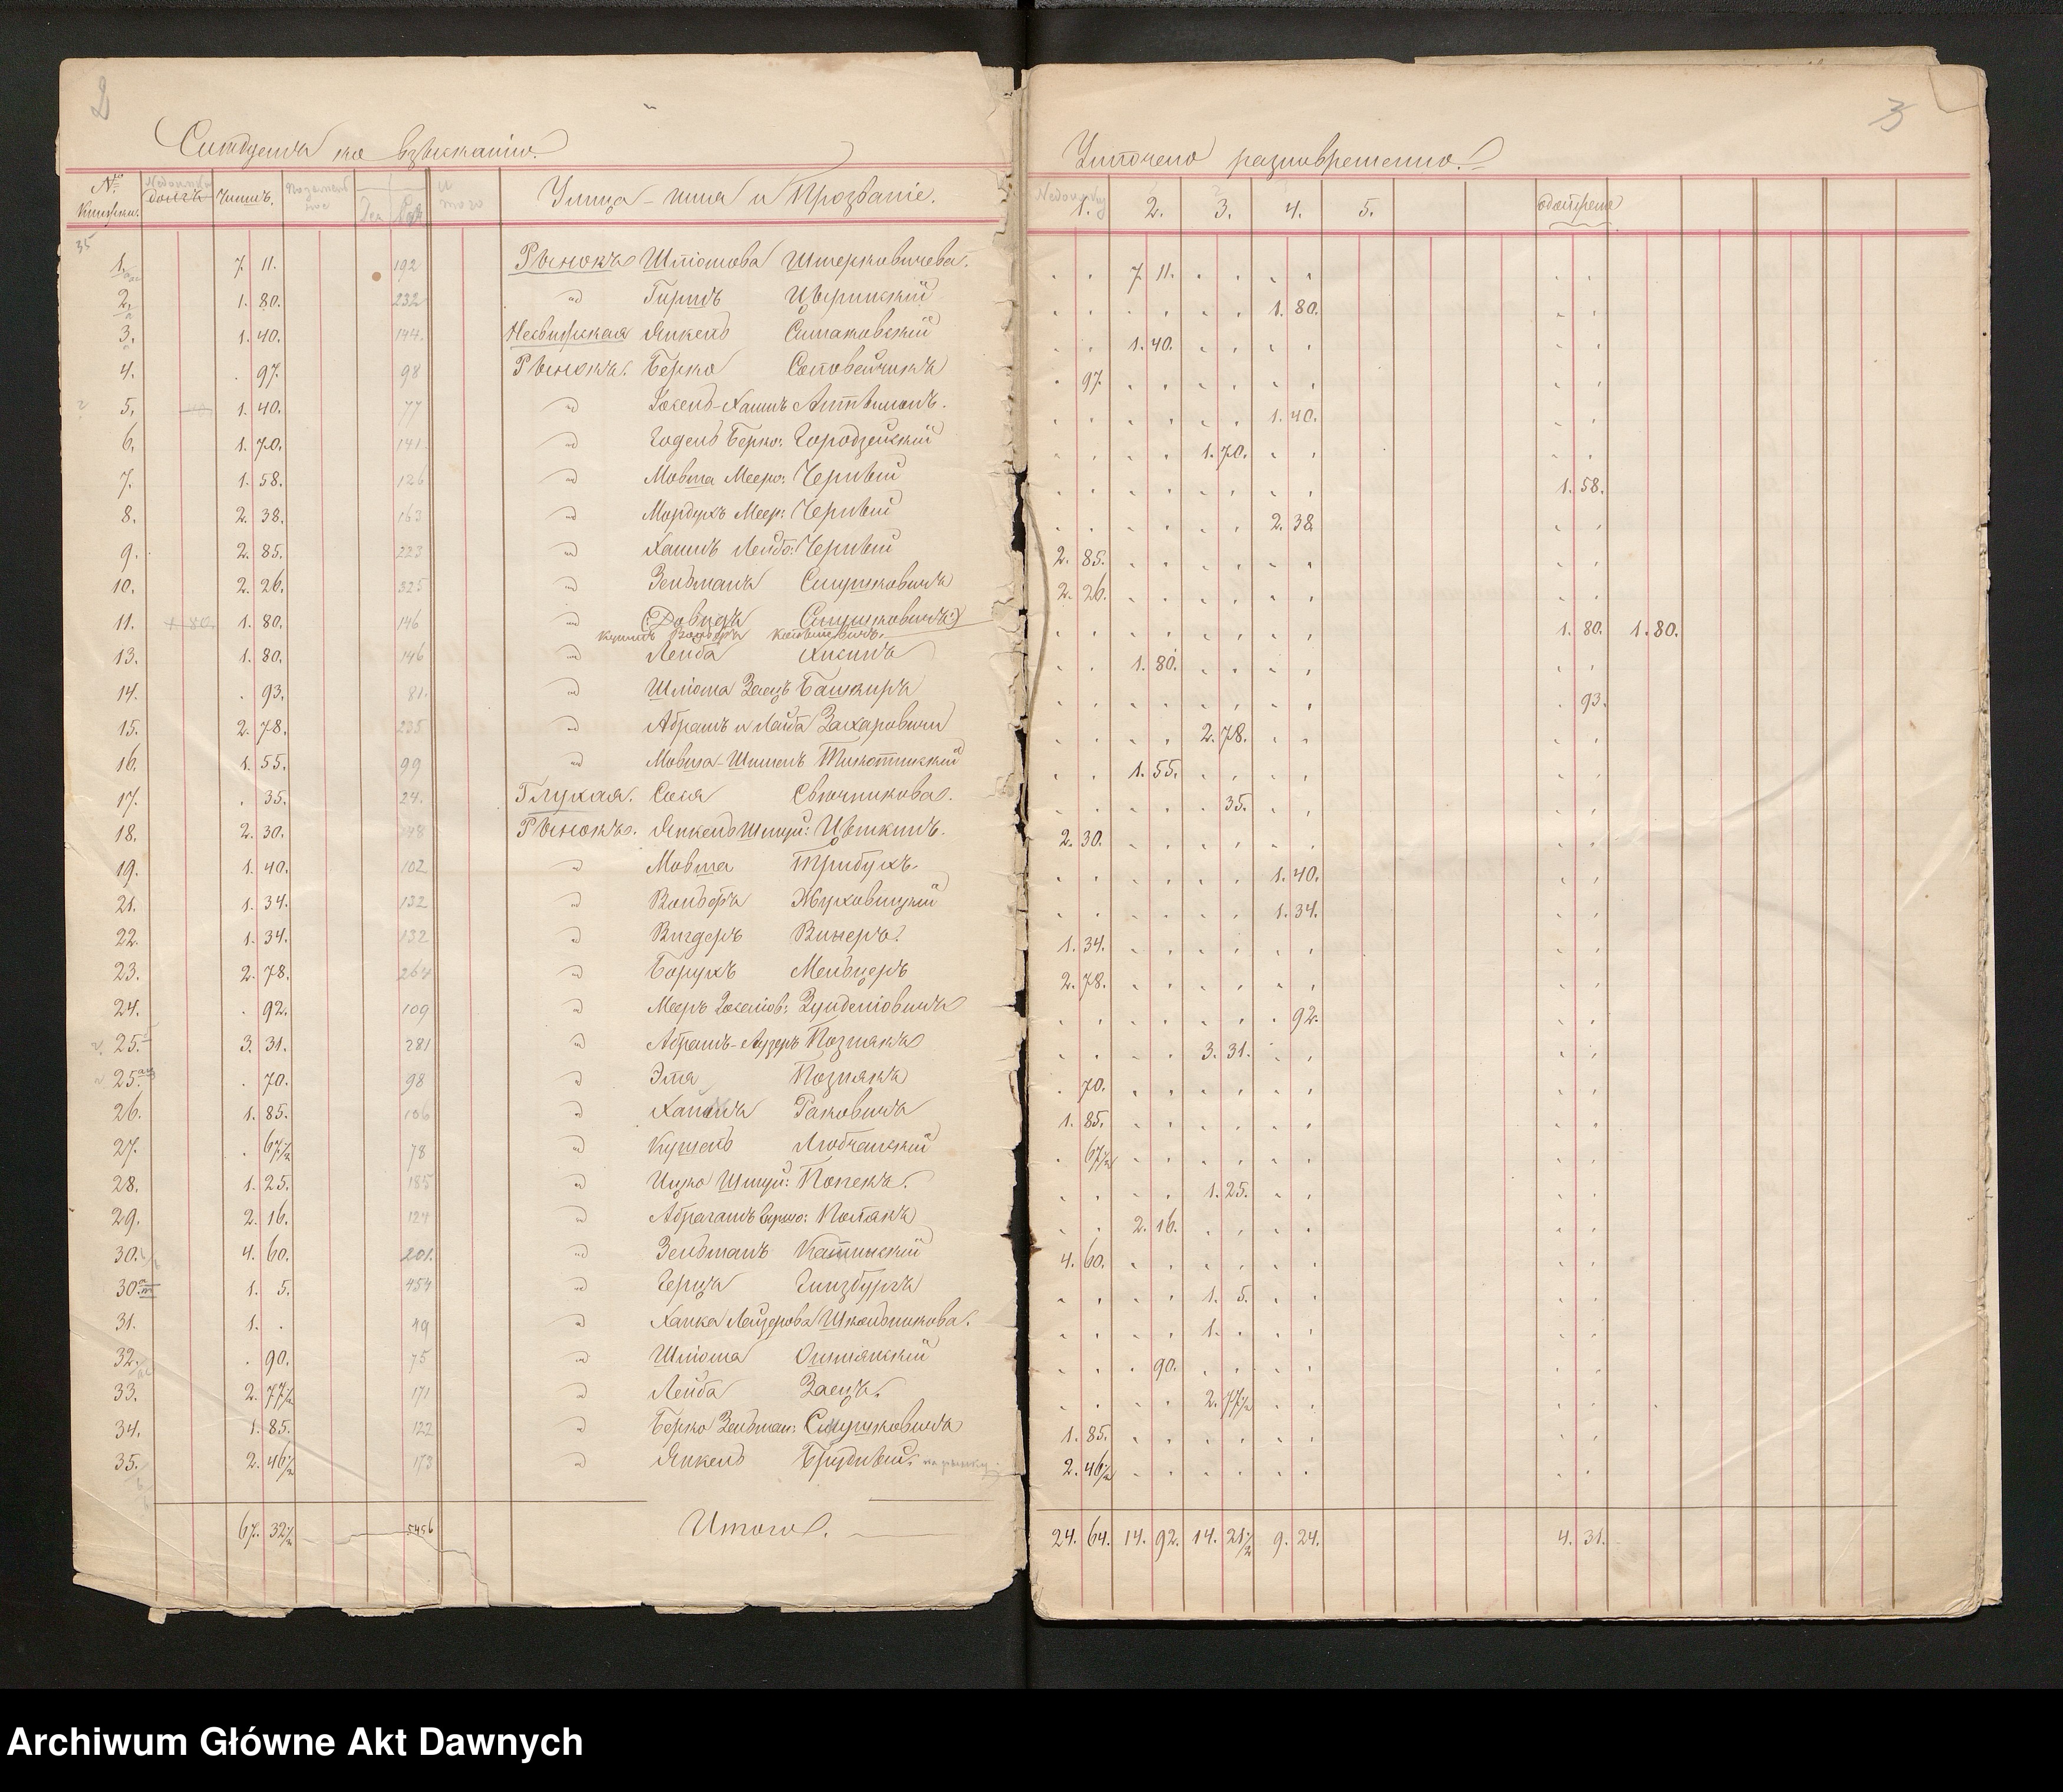 2
Слѣдуетъ ко взысканію.
№ книжки. Недоимка долгъ Чиншъ. Улица - имя и Прозваніе.
35
1. 7. 11. 192 Рынокъ Шліомова Шмерковичева.
2. 1. 80. 232 " Гиршъ Цыринскій
3. 1. 40. 144. Несвижская Янкель Симаковскій
4. . 97. 98 Рынокъ. Берко Соловейчикъ
5. 1. 40. 77 "
6. 1. 70. 141. " Годель Берко: Городзейскій
7. 1. 58. 126 " Мовша Меер: Черный
8. 2. 38. 163 " Мордухъ Меер: Черный
9. 2. 85. 223 " Хаимъ Лейб: Черный
10. 2. 26. 325 " Зельманъ Снушковичъ
11. 1. 80. 146 " (Довидъ Снушковичъ)
13. 1. 80. 146 " Лейба
14. . 93. 81. " Шліома Заецъ Башкиръ
15. 2. 78. 235 " Абрамъ и Лейба Захаровичи
16. 1. 55. 99 " Мовша-Шименъ
17. . 35. 24. Глухая. Сося Свѣчникова.
18. 2. 30. Рынокъ. Янкель Шмуй: Цѣткинъ.
19. 1. 40. 102 " Мовша Трибухъ.
21. 1. 34. 132 " Вольфъ Жуховицкій
22. 1. 34. 132 " Вигдеръ Винеръ?
23. 2. 78. 264 " Борухъ Мельцеръ
24. . 92. 109 " Мееръ
25. 3. 31. 281 " Абрамъ-Лузеръ Познякъ
25. . 70. 98 " Этя Познякъ
26. 1. 85. 106 " Раковичъ
27. . 67½ 78 " Кушель Любчанскій
28. 1. 25. 185 " Ицко Шмуй: Копекъ.
29. 2. 16. 124 " Абрагамъ
30. 4. 60. 201. " Зельманъ
30. 1. 5. 454 " Герцъ Гинзбургъ
31. 1. . 49 " Ханка Лейзерова Школьникова.
32. . 90. 75 " Шліома Ошмянскій
33. 2. 77½ 171 " Лейба Заецъ.
34. 1. 85. 122 " Берко Зельман: Снушковичъ
35. 2. 46½ 173 " Янкель Брудный.
67. 32½ 5456 Итого.
3
Уплочено разновременно.
1. 2. 3. 4. 5.
7. 11.
1. 80.
1. 40.
. 97.
1. 40.
1. 70.
1. 58.
2. 38.
2. 85.
2. 26.
1. 80. 1. 80.
1. 80.
. 93.
2. 78.
1. 55.
35.
2. 30.
1. 40.
1. 34.
1. 34.
2. 78.
. 92.
3. 31.
. 70.
1. 85.
. 67½
1. 25.
2. 16.
4. 60.
1. 5.
1. .
. 90.
2. 77½
1. 85.
2. 46½
24. 64. 14. 92. 14. 21½ 9. 24. 4. 31.
Archiwum Główne Akt Dawnych